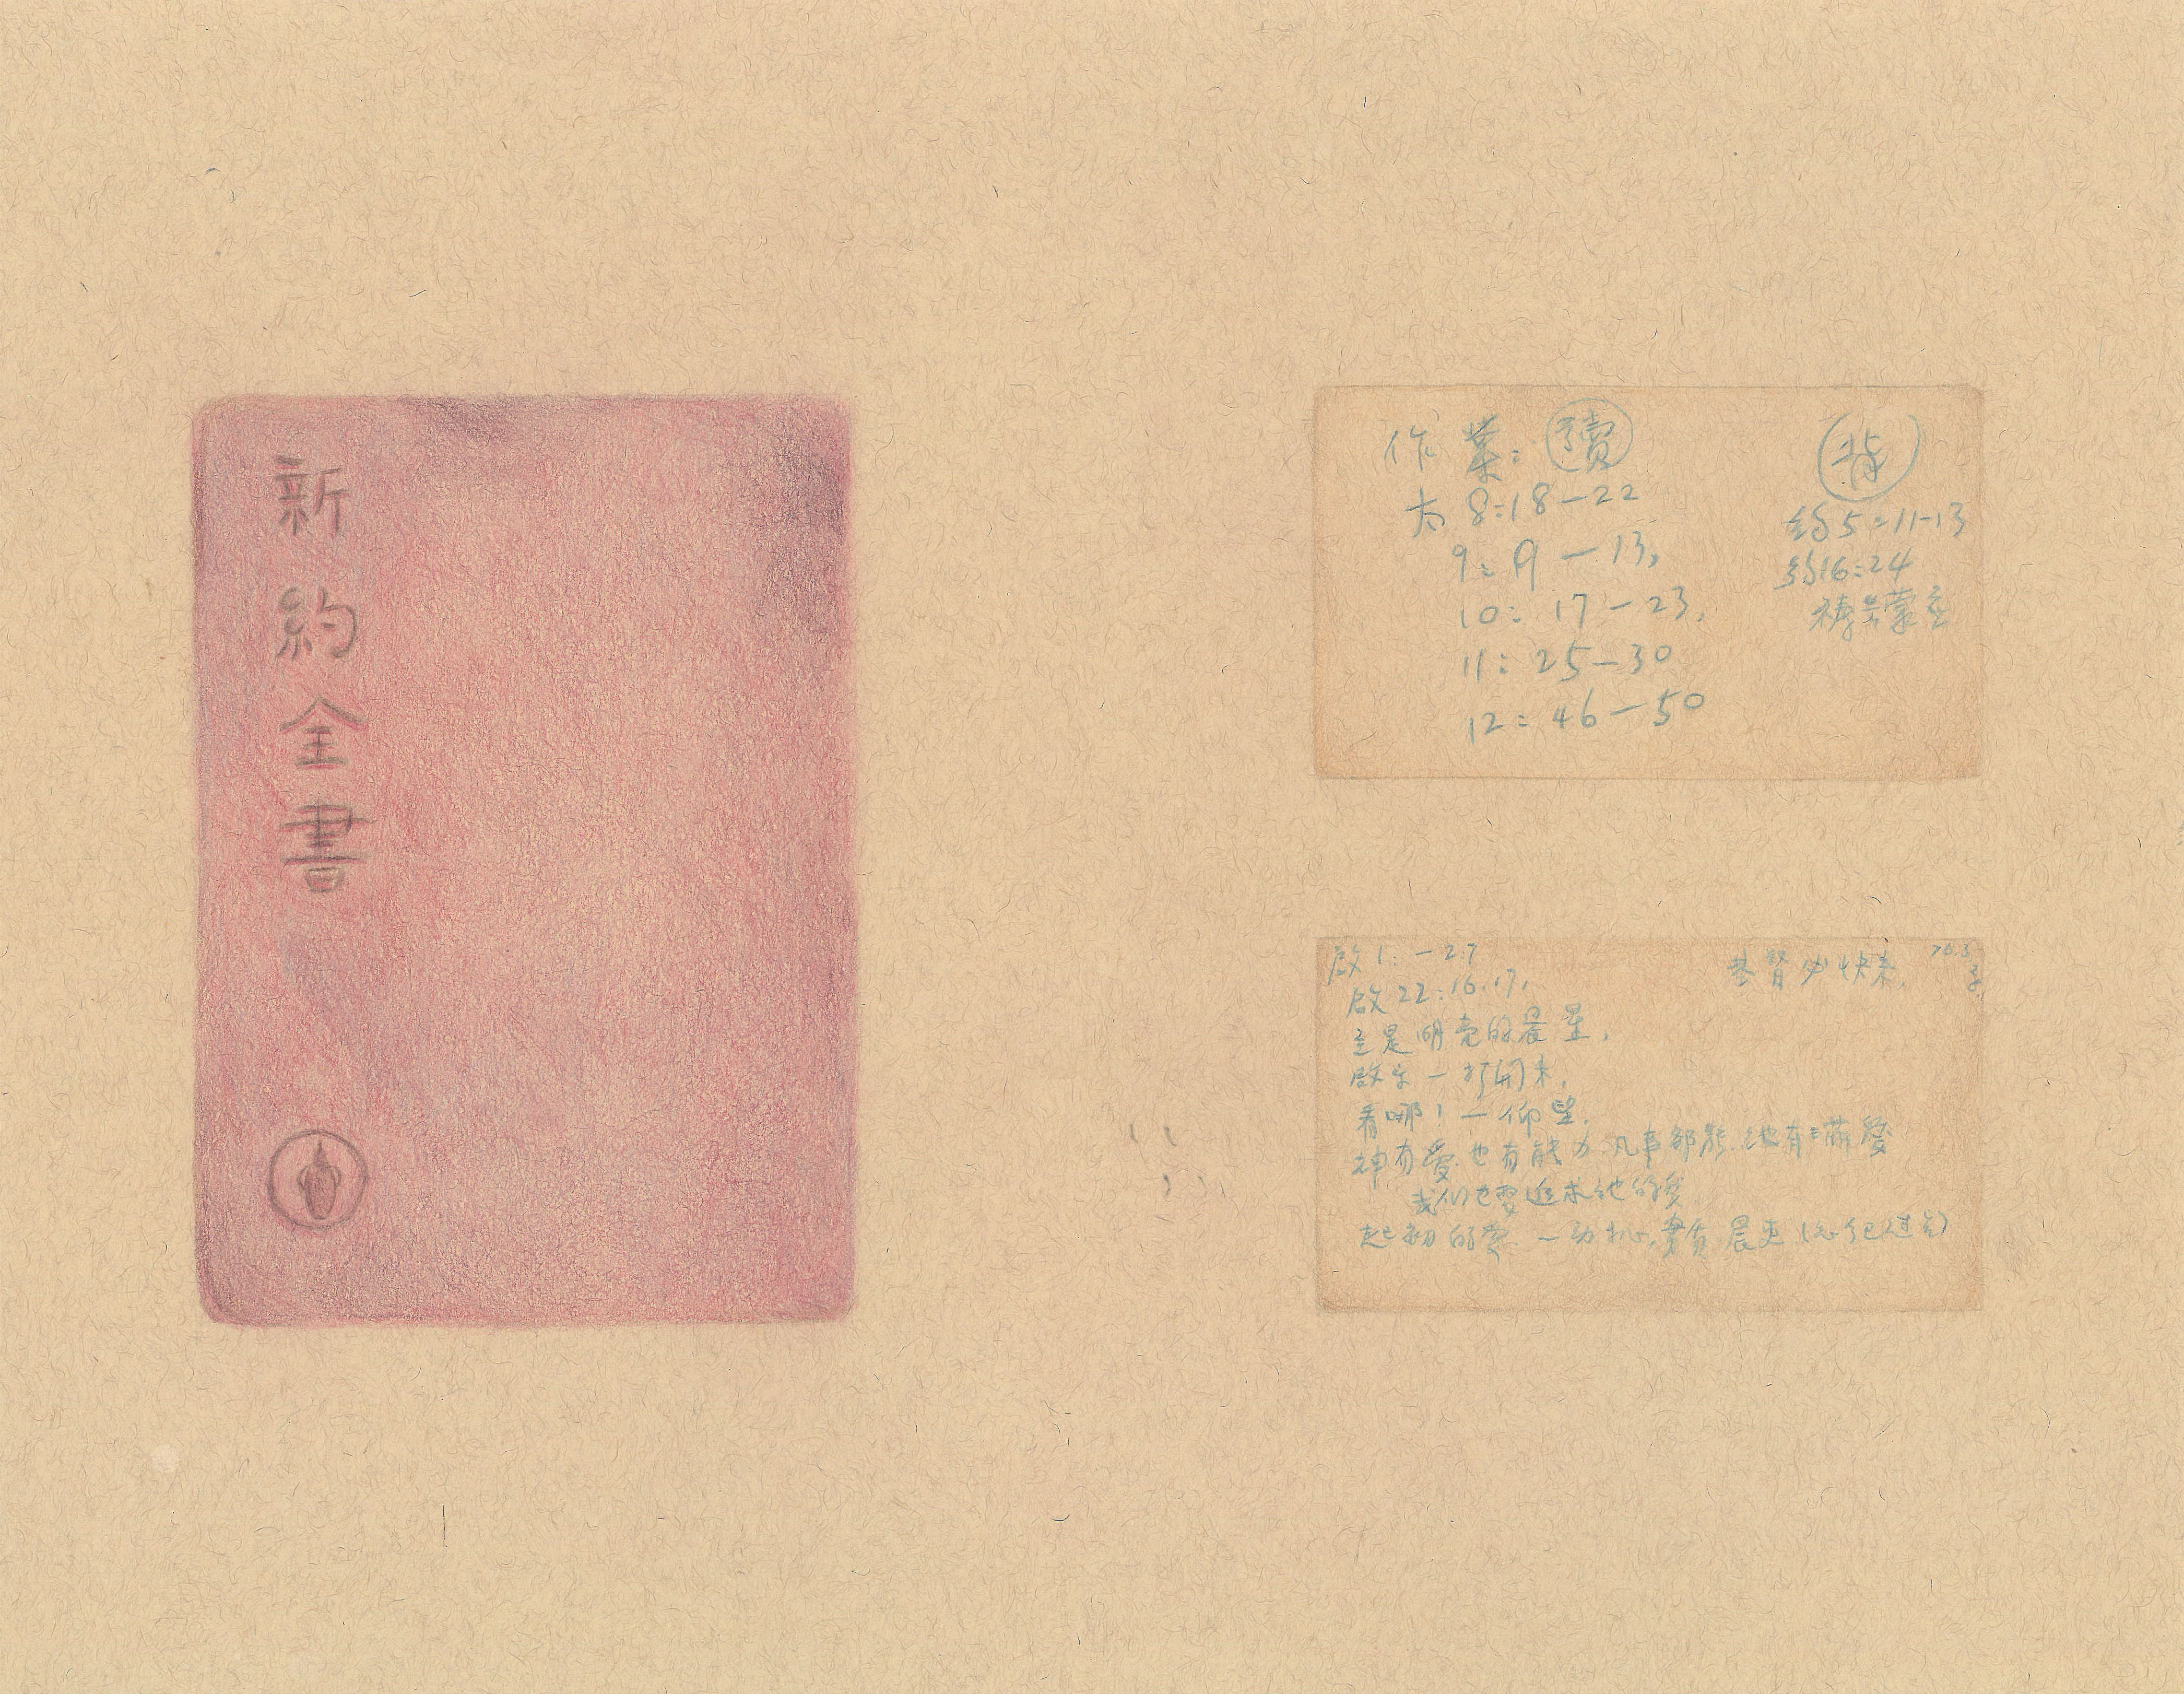 新約全書
作業：讀
太 8:18-22
9: 9-13,
10: 17-23,
11: 25-30
12: 46-50
背
約5:11-13
約16:24
啟 1: -2:7
啟 22:16.17,
主是明亮的晨星,
啟示 — 打開來,
看哪！— 仰望,
神有愛也有能力 凡事都能 他有
我们也要追求他的愛
起初的愛 — 动机,
基督必快來,